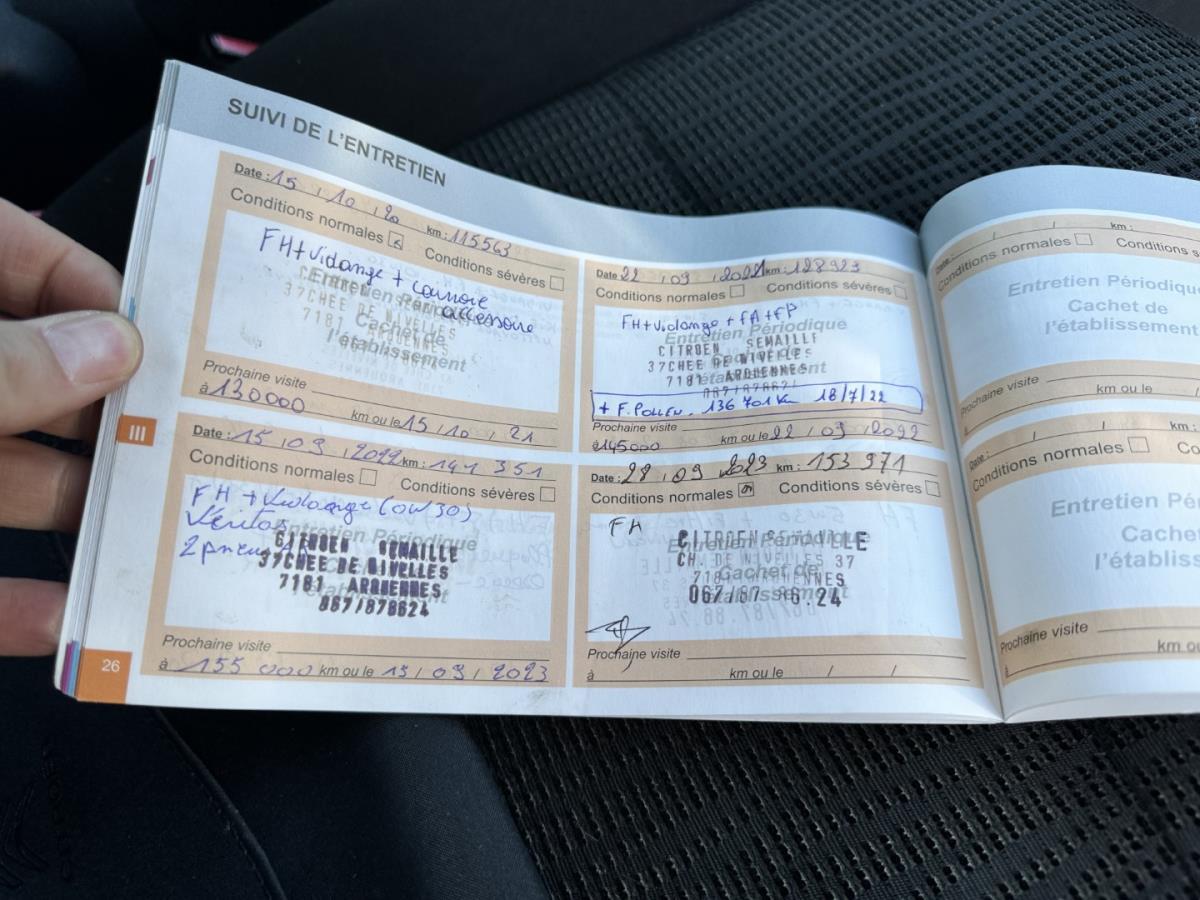 SUIVI DE L'ENTRETIEN
Date : 15 / 10 / 20 km : 115563
Conditions normales Conditions sévères
FH+Vidange + courroie
accessoire
Entretien Périodique
37CHEE DE NIVELLES
7181 ARQUENNES
Cachet de
l'établissement
Prochaine visite
à 130000 km ou le 15 / 10 / 21
Date : 22 / 09 / 2021 km : 128923
Conditions normales Conditions sévères
FH+Vidange + FA+FP
Entretien Périodique
CITROEN SEMAILLE
37CHEE DE NIVELLES
7181 ARQUENNES
067/878624
+ F. POLLEN. 136 701 Km 18/7/22
Prochaine visite
à 145000 km ou le 22 / 09 / 2022
III
Date : 15 / 09 / 2022 km : 141 351
Conditions normales Conditions sévères
FH + Vidange (0W30)
Véritas
2 pneus AR
Entretien Périodique
CITROEN SEMAILLE
37CHEE DE NIVELLES
7181 ARQUENNES
067/878624
Prochaine visite
à 155 000 km ou le 15 / 09 / 2023
Date : 28 / 09 / 2023 km : 153 971
Conditions normales Conditions sévères
FH
Entretien Périodique
CITROEN SEMAILLE
CH. DE NIVELLES 37
7181 ARQUENNES
Cachet de
l'établissement
067/87.86.24
Prochaine visite
à km ou le / /
26
Date : / / km :
Conditions normales Conditions s
Entretien Périodique
Cachet de
l'établissement
Prochaine visite
à km ou le /
Date : / / km :
Conditions normales Conditions s
Entretien Périod
Cachet de
l'établiss
Prochaine visite
à km ou